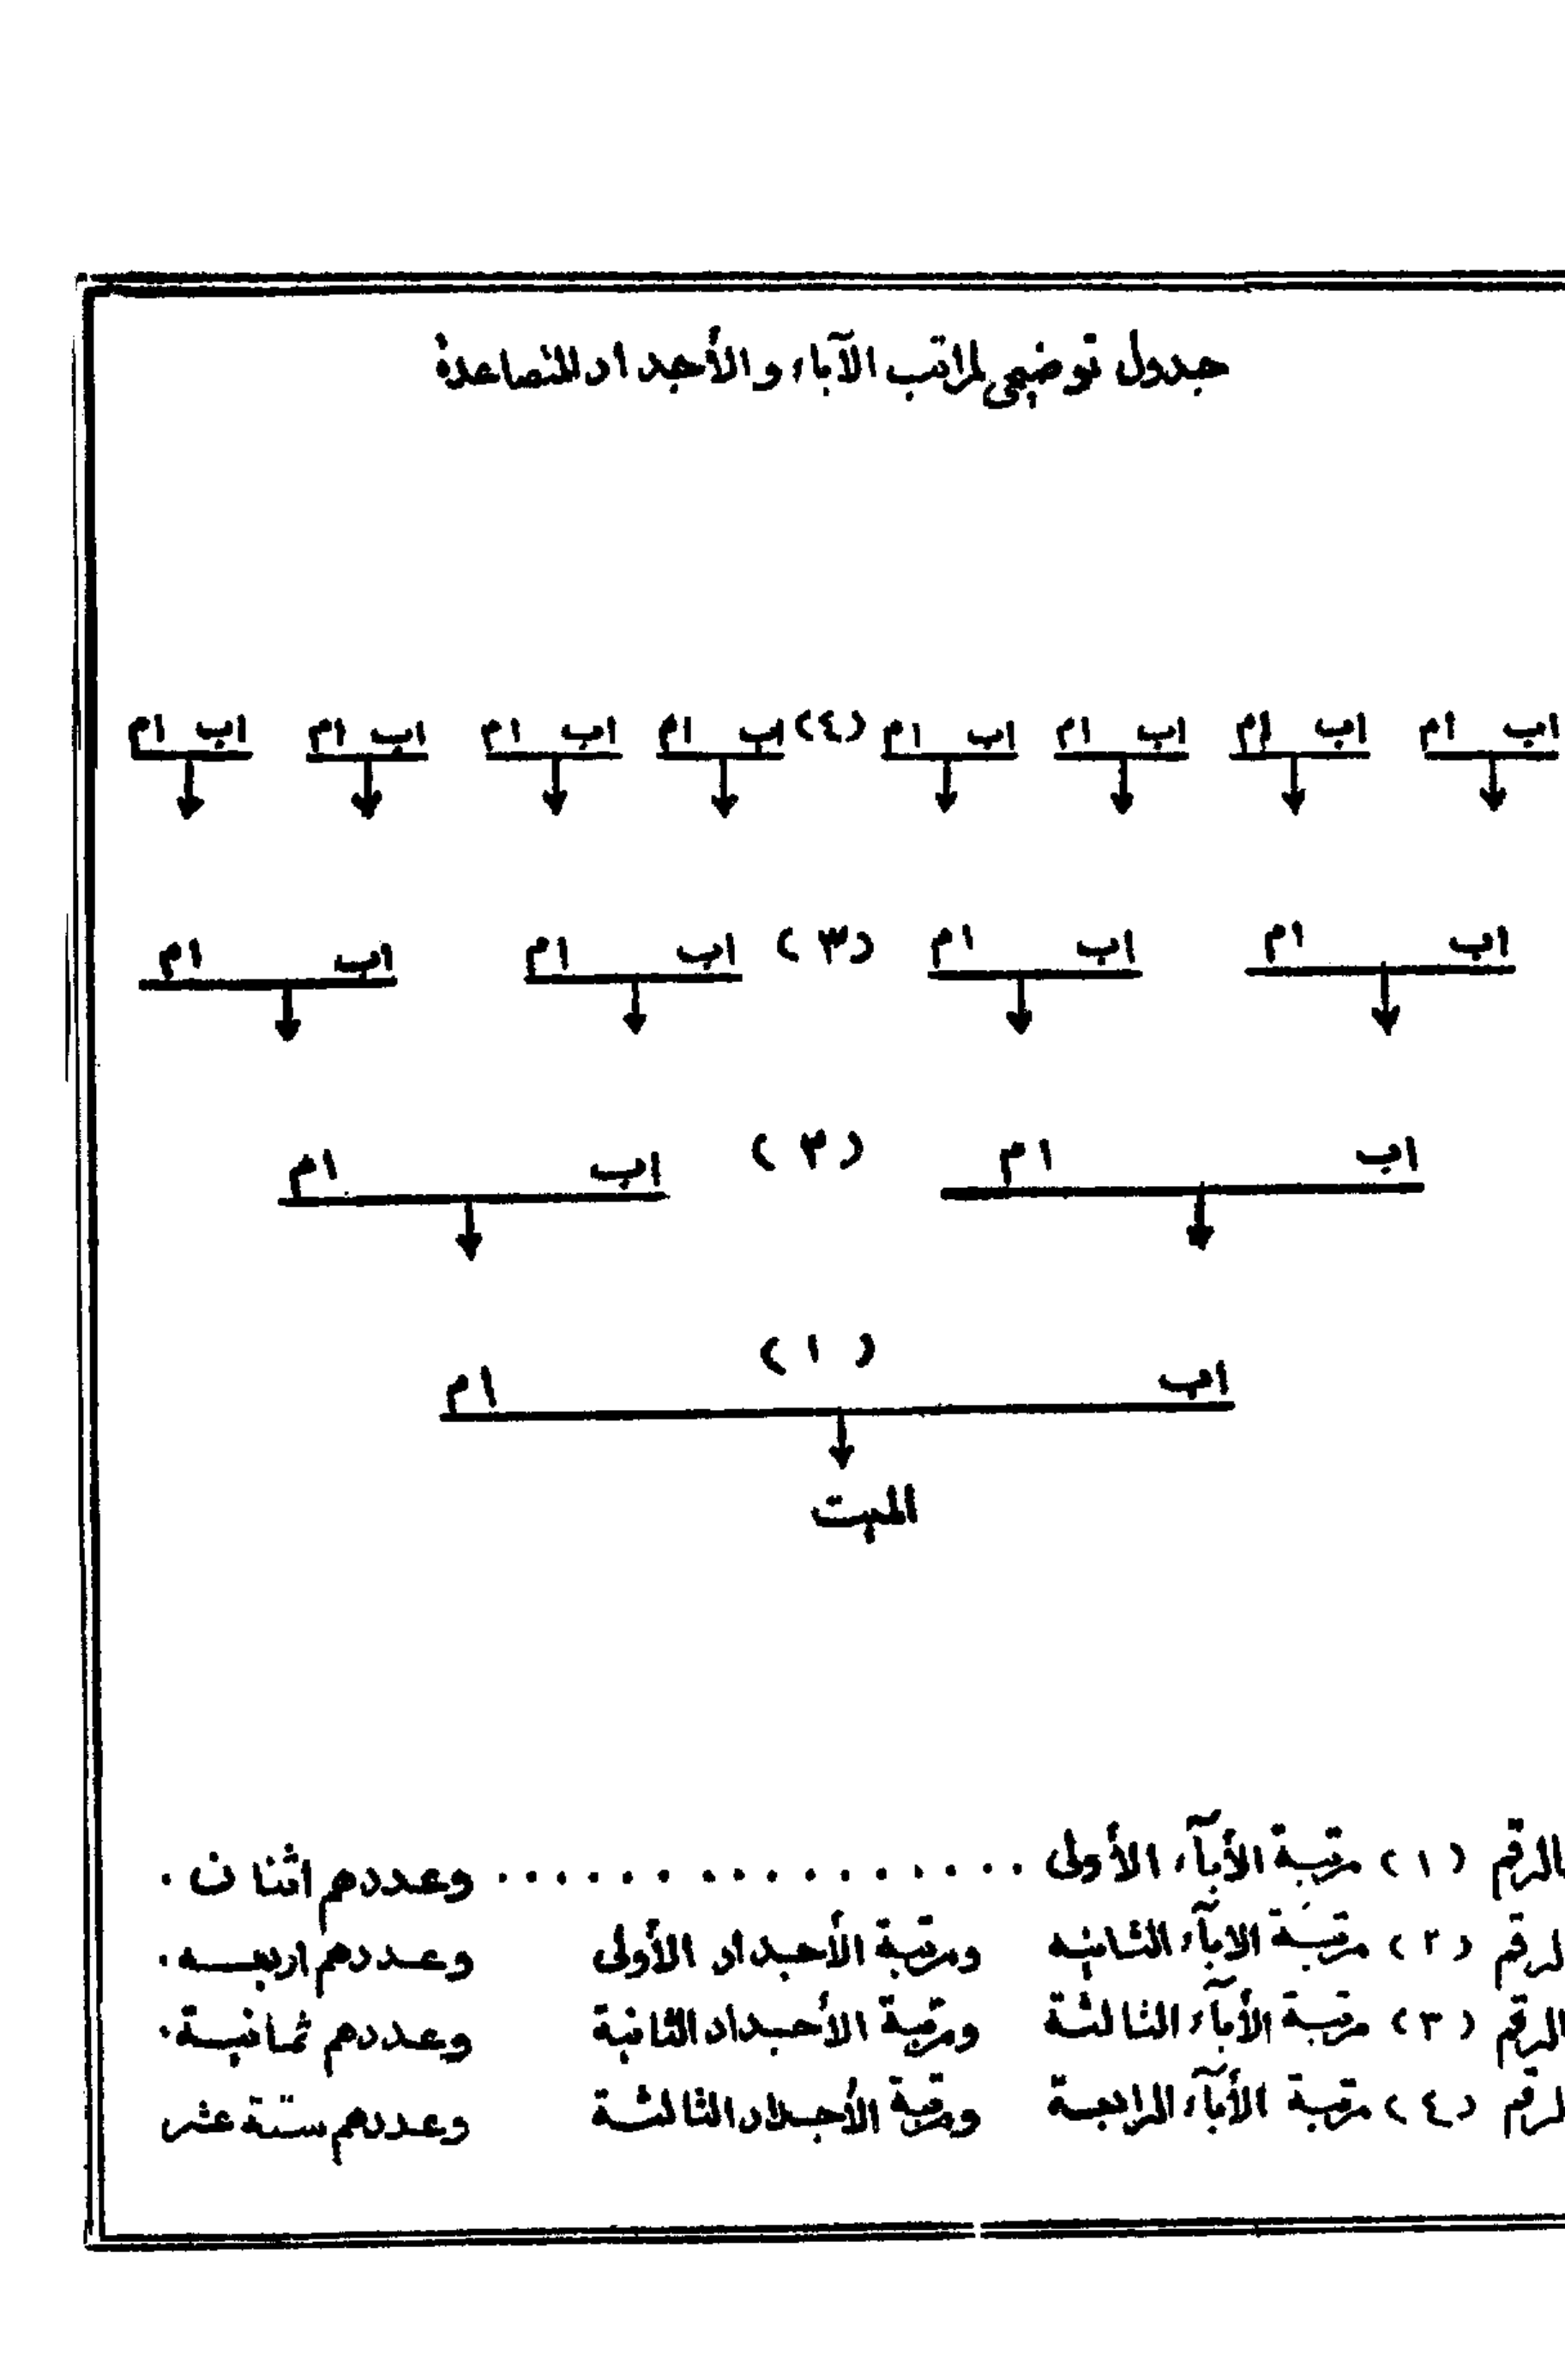 جدول توضيحي لمراتب الآباء والأجداد المتصاعدة
اب ام اب ام اب ام اب ام (٤) اب ام اب ام اب ام اب ام
اب ام اب ام (٣) اب ام اب ام
اب ام (٢) اب ام
اب (١) ام
الميت
الرقم (١) مرتبة الأبآء الأولى . . . . . . . . . . . . . . . . وعددهم اثنان .
الرقم (٢) مرتبة الابآء الثانيه ومرتبة الأجداد الأولى وعددهم اربعه .
الرقم (٣) مرتبة الأبآء الثالثة ومرتبة الأجداد الثانية وعددهم ثمانية .
الرقم (٤) مرتبة الأبآء الرابعة ومرتبة الأجداد الثالثة وعددهم ستة عشر